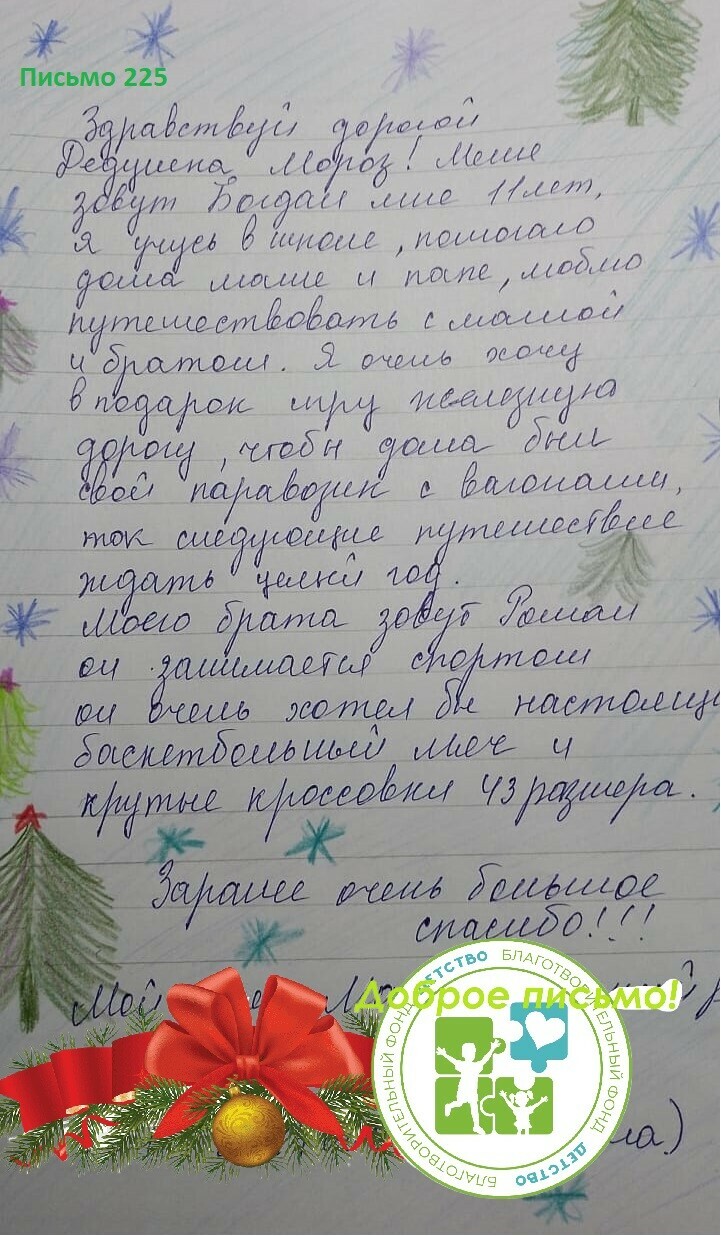 Письмо 225
Здравствуй дорогой
Дедушека Мороз! Меня
зовут Богдан мне 11 лет,
я учусь в школе, помогаю
дома маме и папе, люблю
путешествовать с мамой
и братом. Я очень хочу
в подарок игру железную
дорогу, чтобы дома был
свой паравозик с вагонами,
так следующие путешествие
ждать целый год.
Моего брата зовут Роман
он занимается спортом
он очень хотел бы настоящи
баскетбольный мяч и
крутые кроссовки 43 размера.
Заранее очень большое
спасибо!!!
Мой
Доброе письмо!
БЛАГОТВОРИТЕЛЬНЫЙ ФОНД ДЕТСТВО
БЛАГОТВОРИТЕЛЬНЫЙ ФОНД ДЕТСТВО
ла)